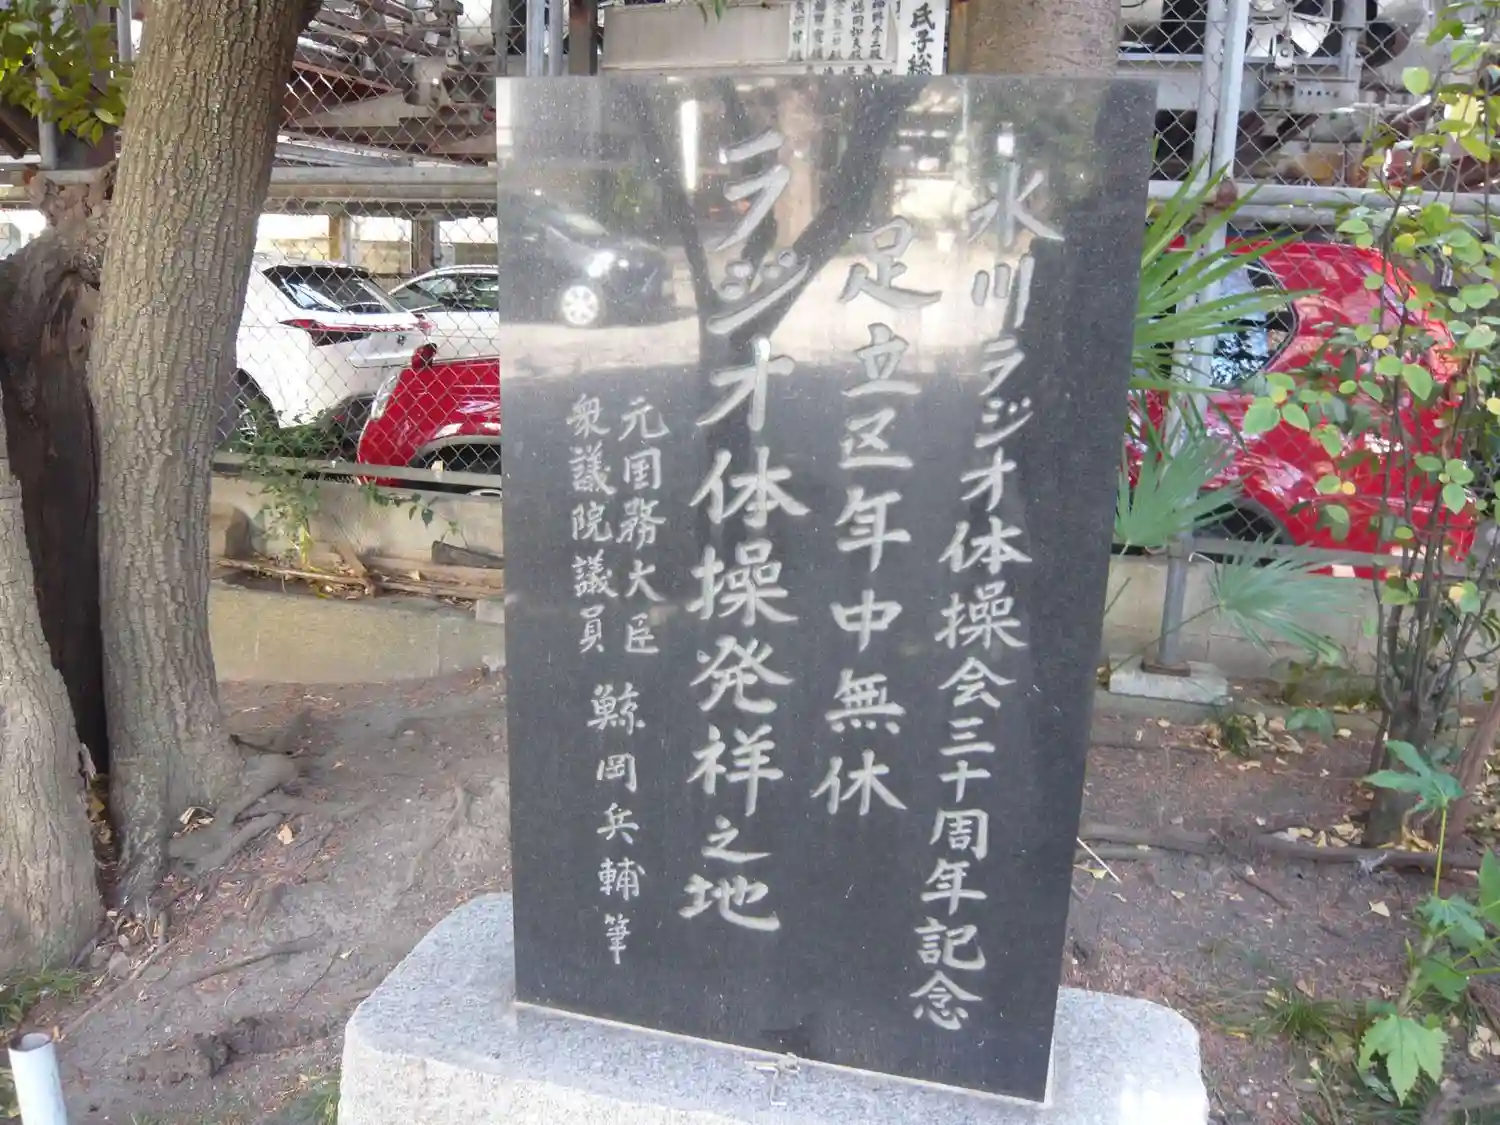 氏子総
氷川ラジオ体操会三十周年記念
足立区年中無休
ラジオ体操発祥之地
元国務大臣
衆議院議員
鯨岡兵輔筆